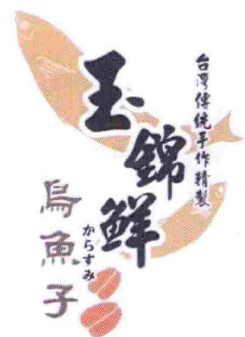 台灣傳統手作精製
玉錦鮮
からすみ
烏魚子